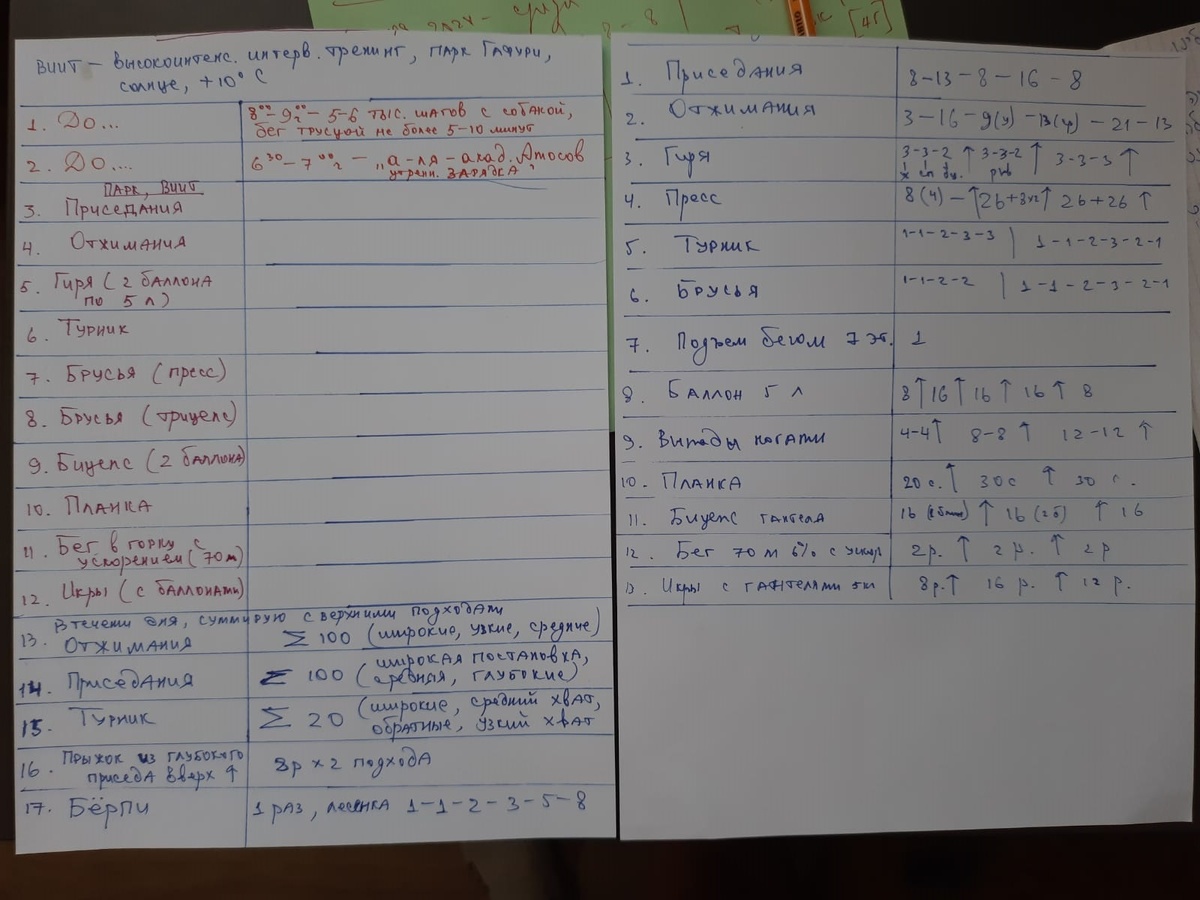 ВИИТ – высокоинтенс. интерв. тренинг, парк Гафури,
солнце, +10° С
1. До... 8⁰⁰-9⁰⁰ – 5-6 тыс. шагов с собакой,
бег трусцой не более 5-10 минут
2. До.... 6³⁰-7⁰⁰ – „а-ля-акад. Амосов
утренн. зарядка"
парк, ВИИТ
3. Приседания
4. Отжимания
5. Гиря (2 баллона
по 5 л)
6. Турник
7. Брусья (пресс)
8. Брусья (трицепс)
9. Бицепс (2 баллона)
10. Планка
11. Бег в горку с
ускорением (70 м)
12. Икры (с баллонами)
В течени дня, суммирую с верхними подходами
13. Отжимания Σ 100 (широкие, узкие, средние)
14. Приседания Σ 100 (широкая постановка,
средняя, глубокие)
15. Турник Σ 20 (широкие, средний хват,
обратные, узкий хват
16. Прыжок из глубокого
приседа вверх ↑ 8р х 2 подхода
17. Бёрпи 1 раз, лесенка 1-1-2-3-5-8
1. Приседания 8-13-8-16-8
2. Отжимания 3-16-9(у)-13(ур)-21-13
3. Гиря 3-3-2 ↑ 3-3-2 ↑ 3-3-3 ↑
4. Пресс 8(ч) – ↑26+3х2↑ 26+26 ↑
5. Турник 1-1-2-3-3 | 1-1-2-3-2-1
6. Брусья 1-1-2-2 | 1-1-2-3-2-1
7. Подъем бегом 7 эт. 1
8. Баллон 5 л 8↑16↑16↑16↑8
9. Выпады ногами 4-4↑ 8-8↑ 12-12↑
10. Планка 20 с.↑ 30 с ↑ 30 с.
11. Бицепс гантеля 16 ↑ 16 (2б) ↑ 16
12. Бег 70 м 6% с ускор 2р. ↑ 2 р. ↑ 2 р
13. Икры с гантелями 5кг 8р.↑ 16 р. ↑ 12 р.